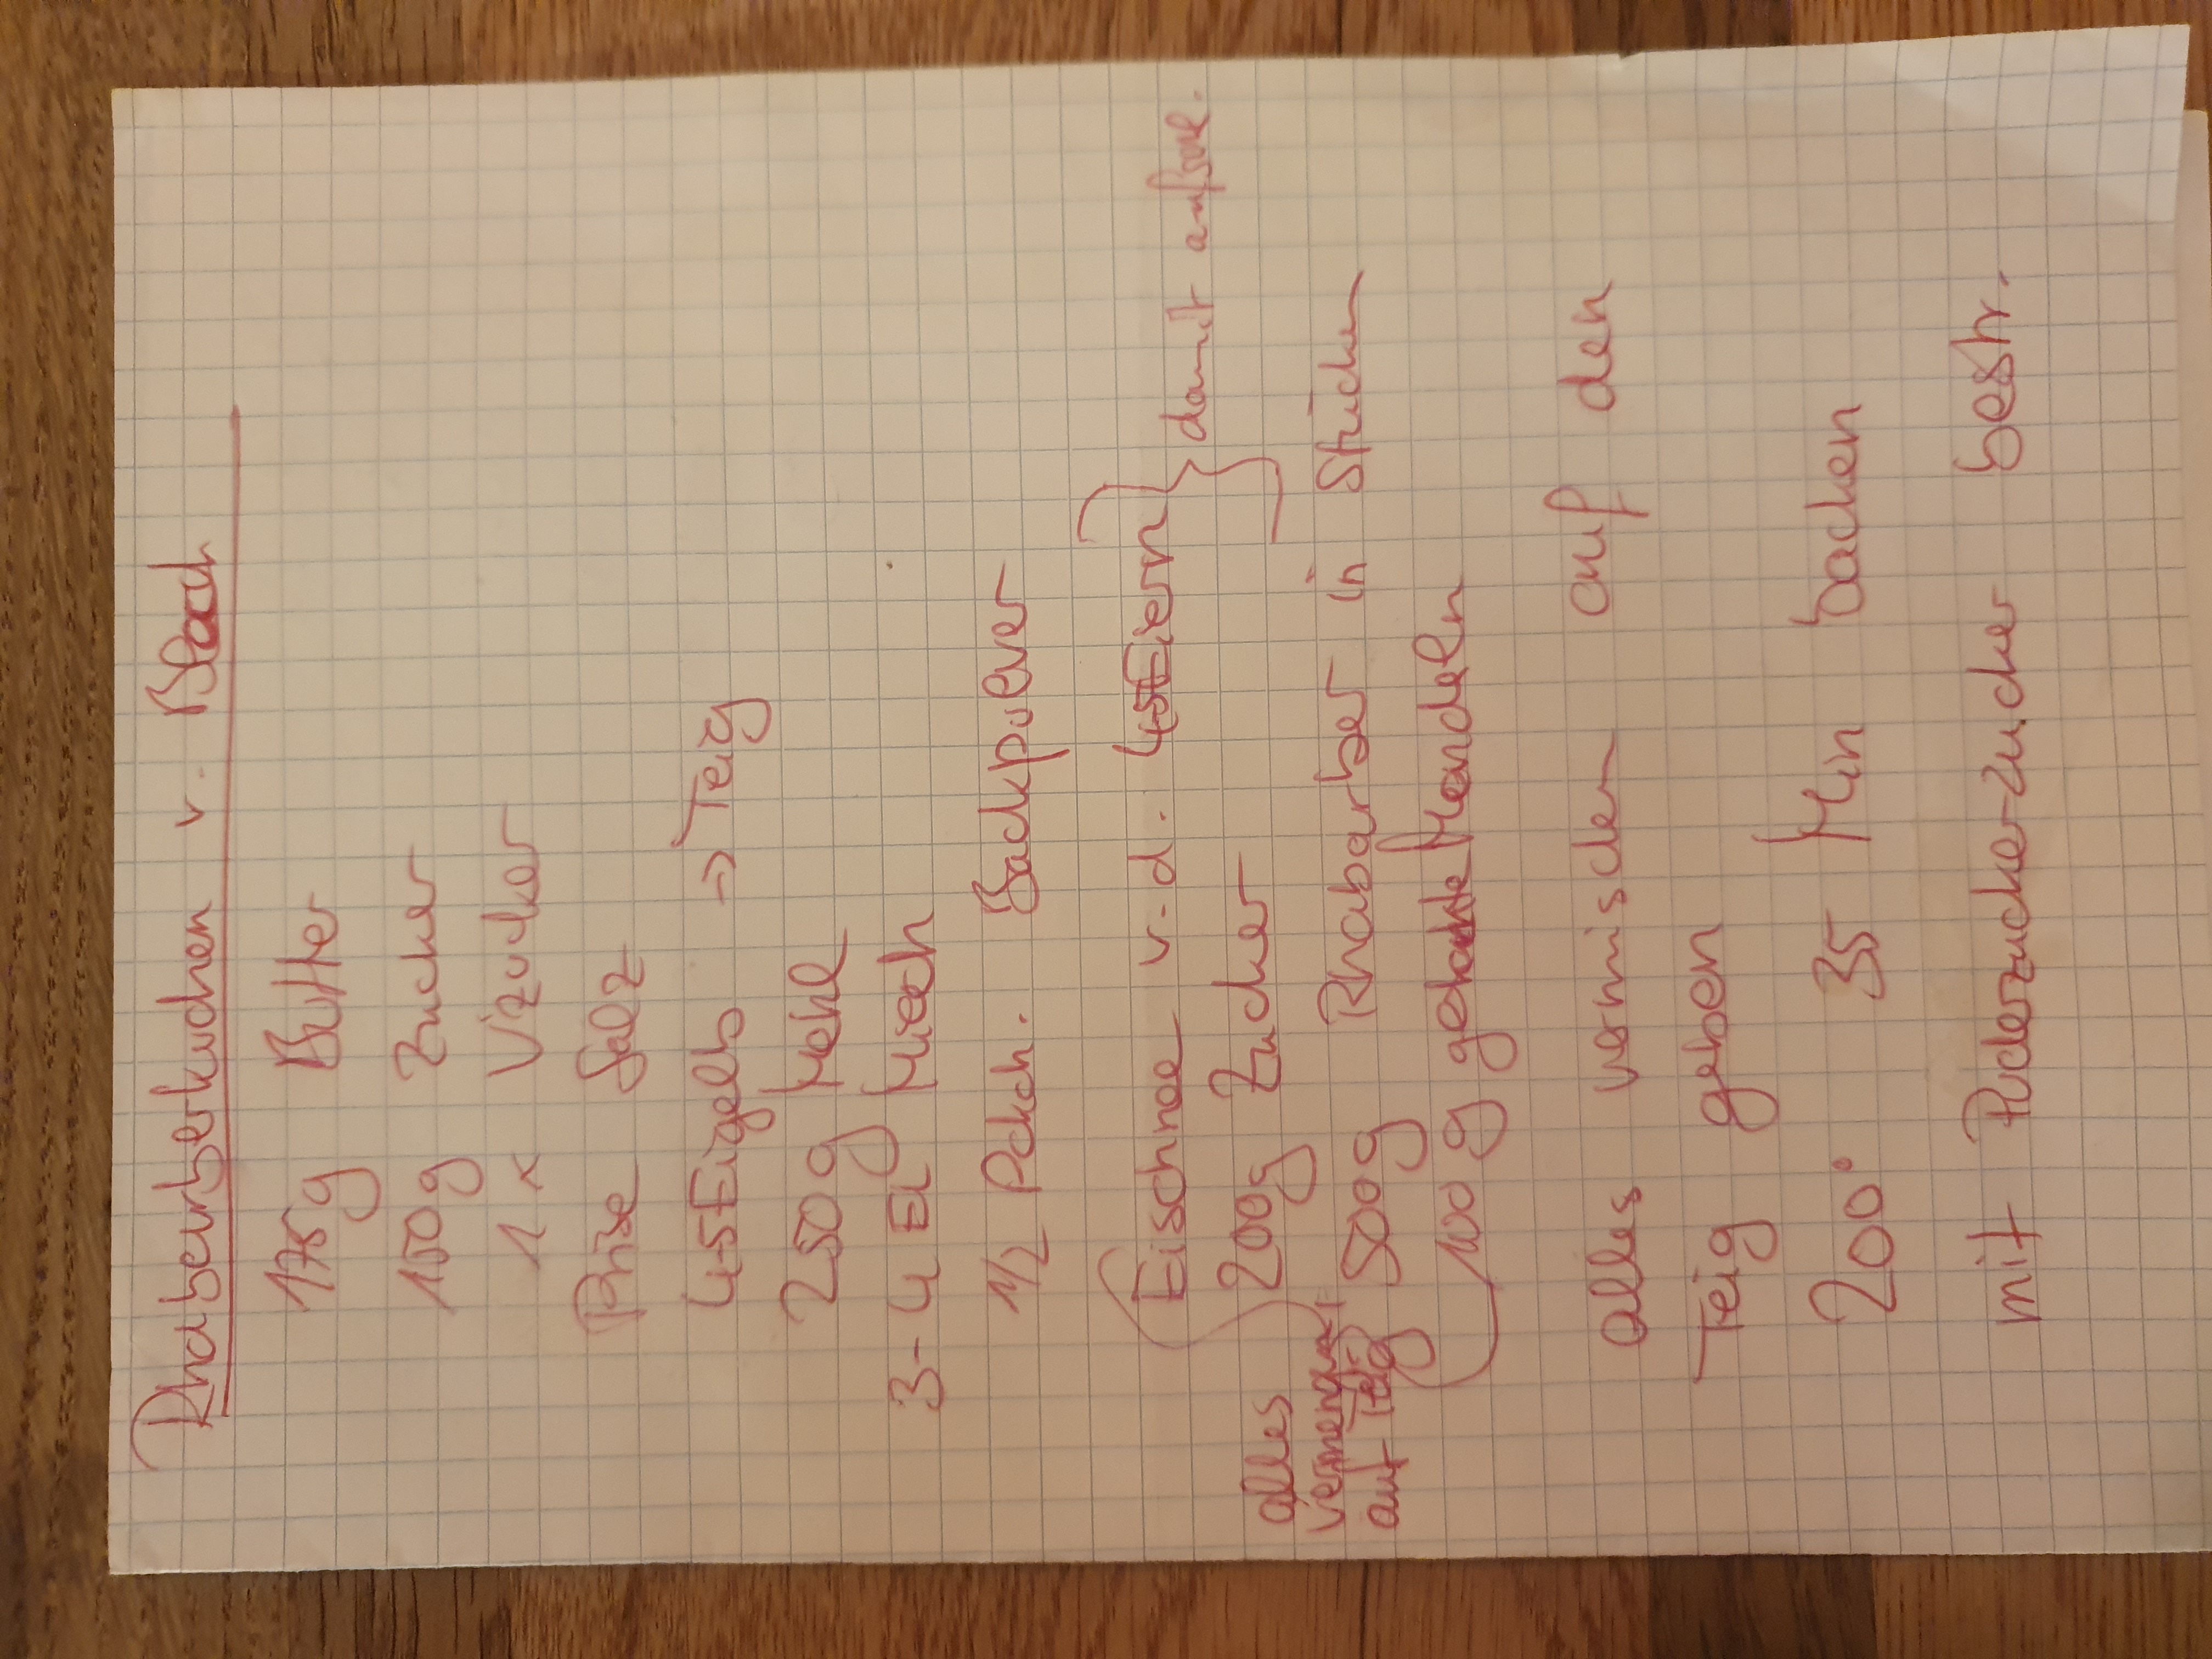 Rhabarberkuchen v. Blech
175g Butter
150g Zucker
1 x Vizucker
Prise Salz
4-5 Eigelb → Teig
250g Mehl
3-4 El Milch
1/2 Pckch. Backpulver
Eischnee v. d. 4-5 Eiern } damit aufschl.
200g Zucker
500g Rhabarber in Stücken
100 g gehackte Mandeln
alles
vermengt
auf Teig
alles vermischen auf den
Teig geben
200° 35 Min backen
mit Puderzucker-zucker bestr.